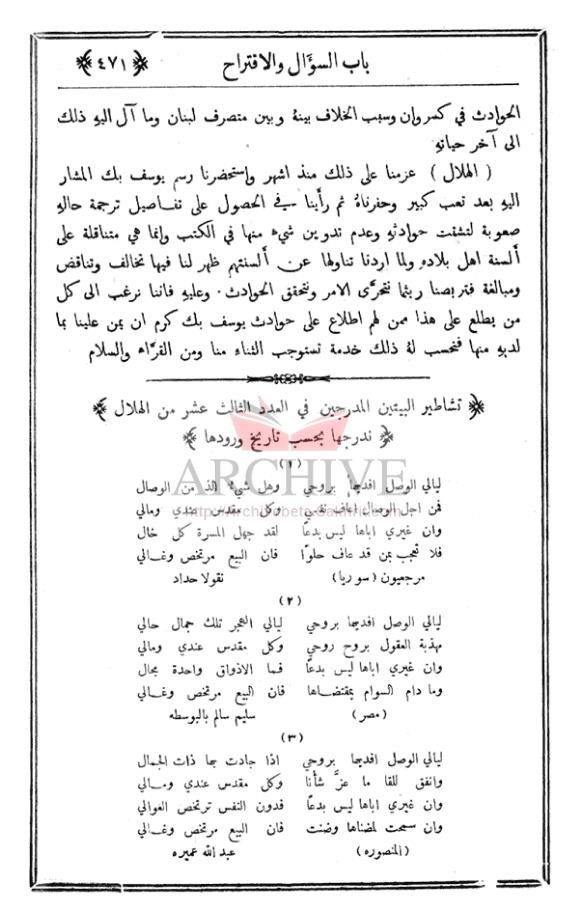 باب السؤال والاقتراح ﴿٤٧١﴾
الحوادث في كسروان وسبب الخلاف بينهُ وبين متصرف لبنان وما آل اليهِ ذلك
الى آخر حياتهِ
( الهلال ) عزمنا على ذلك منذ اشهر واستحضرنا رسم يوسف بك المشار
اليهِ بعد تعب كبير وحفرناهُ ثم رأينا في الحصول على تفاصيل ترجمة حالهِ
صعوبة لتشتت حوادثهِ وعدم تدوين شيء منها في الكتب وانما هي متناقلة على
ألسنة اهل بلادهِ ولما اردنا تناولها عن ألسنتهم ظهر لنا فيها تخالف وتناقض
ومبالغة فتربصنا ريثما نتحرَّى الامر ونتحقق الحوادث . وعليهِ فاننا نرغب الى كل
من يطلع على هذا ممن لهم اطلاع على حوادث يوسف بك كرم ان يمن علينا بما
لديهِ منها فنحسب لهُ ذلك خدمة تستوجب الثناء منا ومن القرَّاء والسلام
﴿ تشاطير البيتين المدرجين في العدد الثالث عشر من الهلال ﴾
﴿ ندرجها بحسب تاريخ ورودها ﴾
ARCHIVE
(١)
ليالي الوصل افديها بروحي وهل شيء الذ من الوصال
فمن اجل الوصال اعاف نفسي وكل مقدس عندي ومالي
وان غيري اباها ليس بدعًا لقد جهل المسرة كل خال
فلا تعجب بمن قد عاف حلوًا فان البيع مرتخص وغالي
مرجعيون (سوريا) نقولا حداد
(٢)
ليالي الوصل افديها بروحي ليالي الهجر تلك جمال حالي
مهذبة العقول بروح روحي وكل مقدس عندي ومالي
وان غيري اباها ليس بدعًا فما الاذواق واحدة مجال
وما دام السوام بمقتضاها فان البيع مرتخص وغالي
(مصر) سليم سالم بالبوسطه
(٣)
ليالي الوصل افديها بروحي اذا جادت بها ذات الجمال
وانفق للقا ما عزَّ شأنًا وكل مقدس عندي ومالي
وان غيري اباها ليس بدعًا فدون النفس ترتخص العوالي
وان سمحت لمضناها وضنت فان البيع مرتخص وغالي
(المنصوره) عبد الله عميره